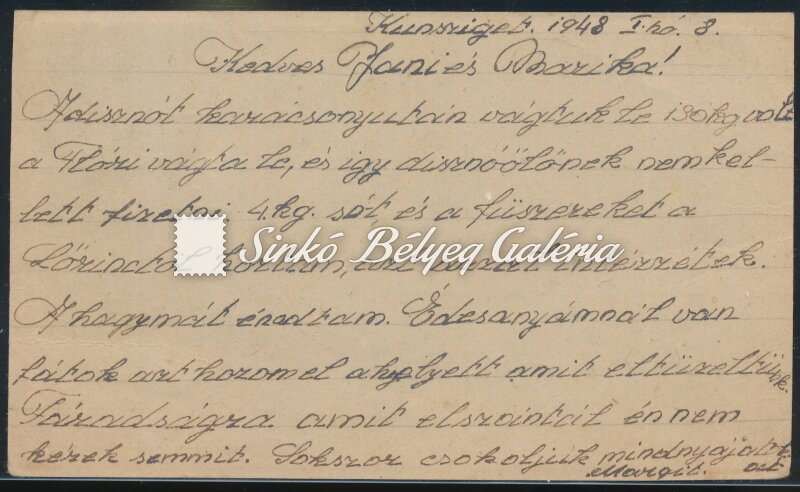 Kunsziget. 1948 I. hó. 8.
Kedves Jani és Marika!
A disznót karácsonyután vágtuk le 130 kg volt
a Flóri vágta le, és igy disznóölőnek nem kel-
lett fizetni 4. kg. sót és a füszereket a
Sinkó Bélyeg Galéria
Lőrinctől hoztam,
A hagymát én adtam. Édesanyámnál van
fátok azt hozom el ahelyett amit eltüzeltünk.
Fáradságra amit elszántál én nem
kérek semmit. Sokszor csokoljuk mindnyájatokat
Margit.